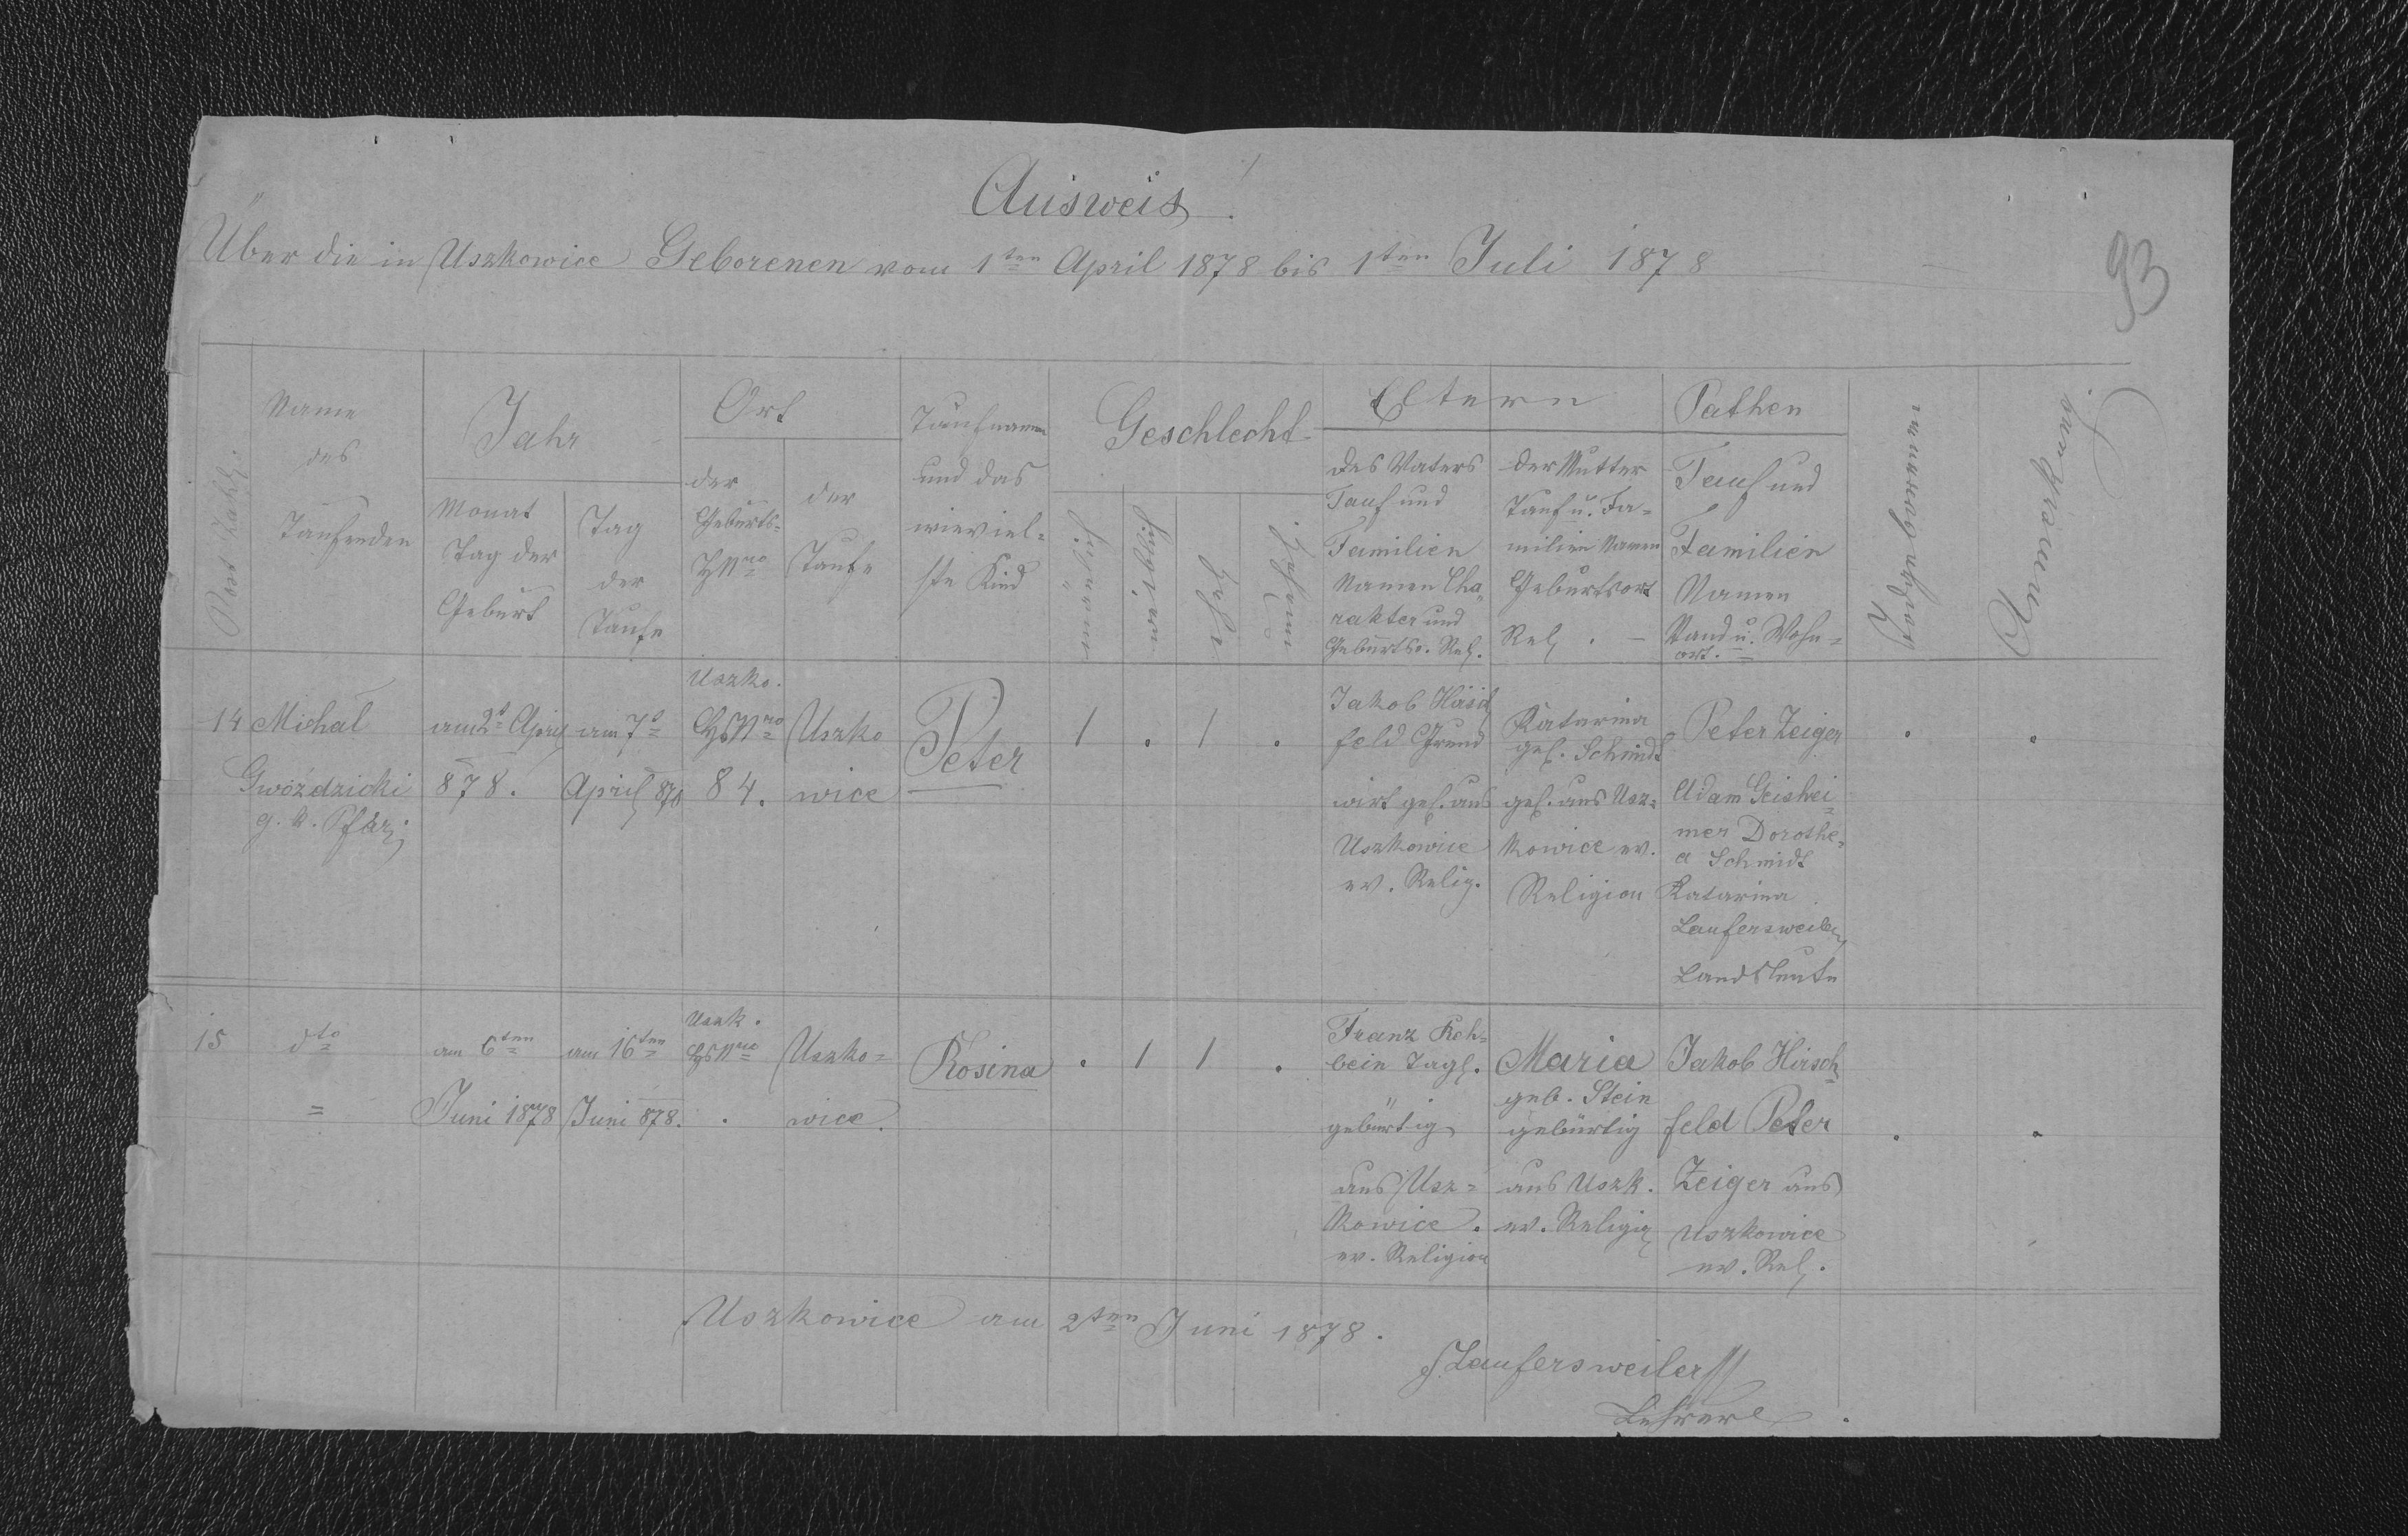 Ausweis
93
Über die in Uszkowice Geborenen vom 1ten April 1878 bis 1ten Juli 1878
Post Zahl
Name
des
Taufenden
Jahr
Monat
Tag der
Geburt
Tag
der
Taufe
Ort
der
Geburts=
HNro
der
Taufe
Taufname
und das
wieviel=
ste Kind
Geschlecht
Eltern
des Vaters
Tauf und
Familien
Namen Cha,,
rakter und
Geburtso. Rel.
der Mutter
Tauf u. Fa=
milien Namen
Geburtsort
Rel. –
Pathen
Tauf und
Familien
Namen
Stand u. Wohn=
ort.
Anmerkung
14
Michal
Gwóździcki
g. k. Pfar.
am 2t April
878.
am 7t
April 878
Uszko.
HsNro
84.
Uszko
wice
Peter
1 . 1 .
Jakob
feld Grund
wirt geb. aus
Uszkowice
ev. Relig.
Katarina
geb. Schmidt
geb. aus Usz=
kowice ev.
Religion
Peter Zeiger
Adam Geishei=
mer Dorothe=
a Schmidt
Katarina
Laufersweiler
Landsleute
. .
15
dto
=
am 6ten
Juni 1878
am 16ten
Juni 878.
Uszk.
HsNro
.
Uszko=
wice.
Rosina
. 1 1 .
Franz Reh=
bein Tagl.
gebürtig
aus Usz=
kowice.
ev. Religion
Maria
geb. Stein
gebürtig
aus Uszk.
ev. Religi
Jakob Hirsch=
feld Peter
Zeiger aus
Uszkowice
ev. Rel.
. .
Uszkowice am 2ten Juni 1878.
J Laufersweiler
Lehrer